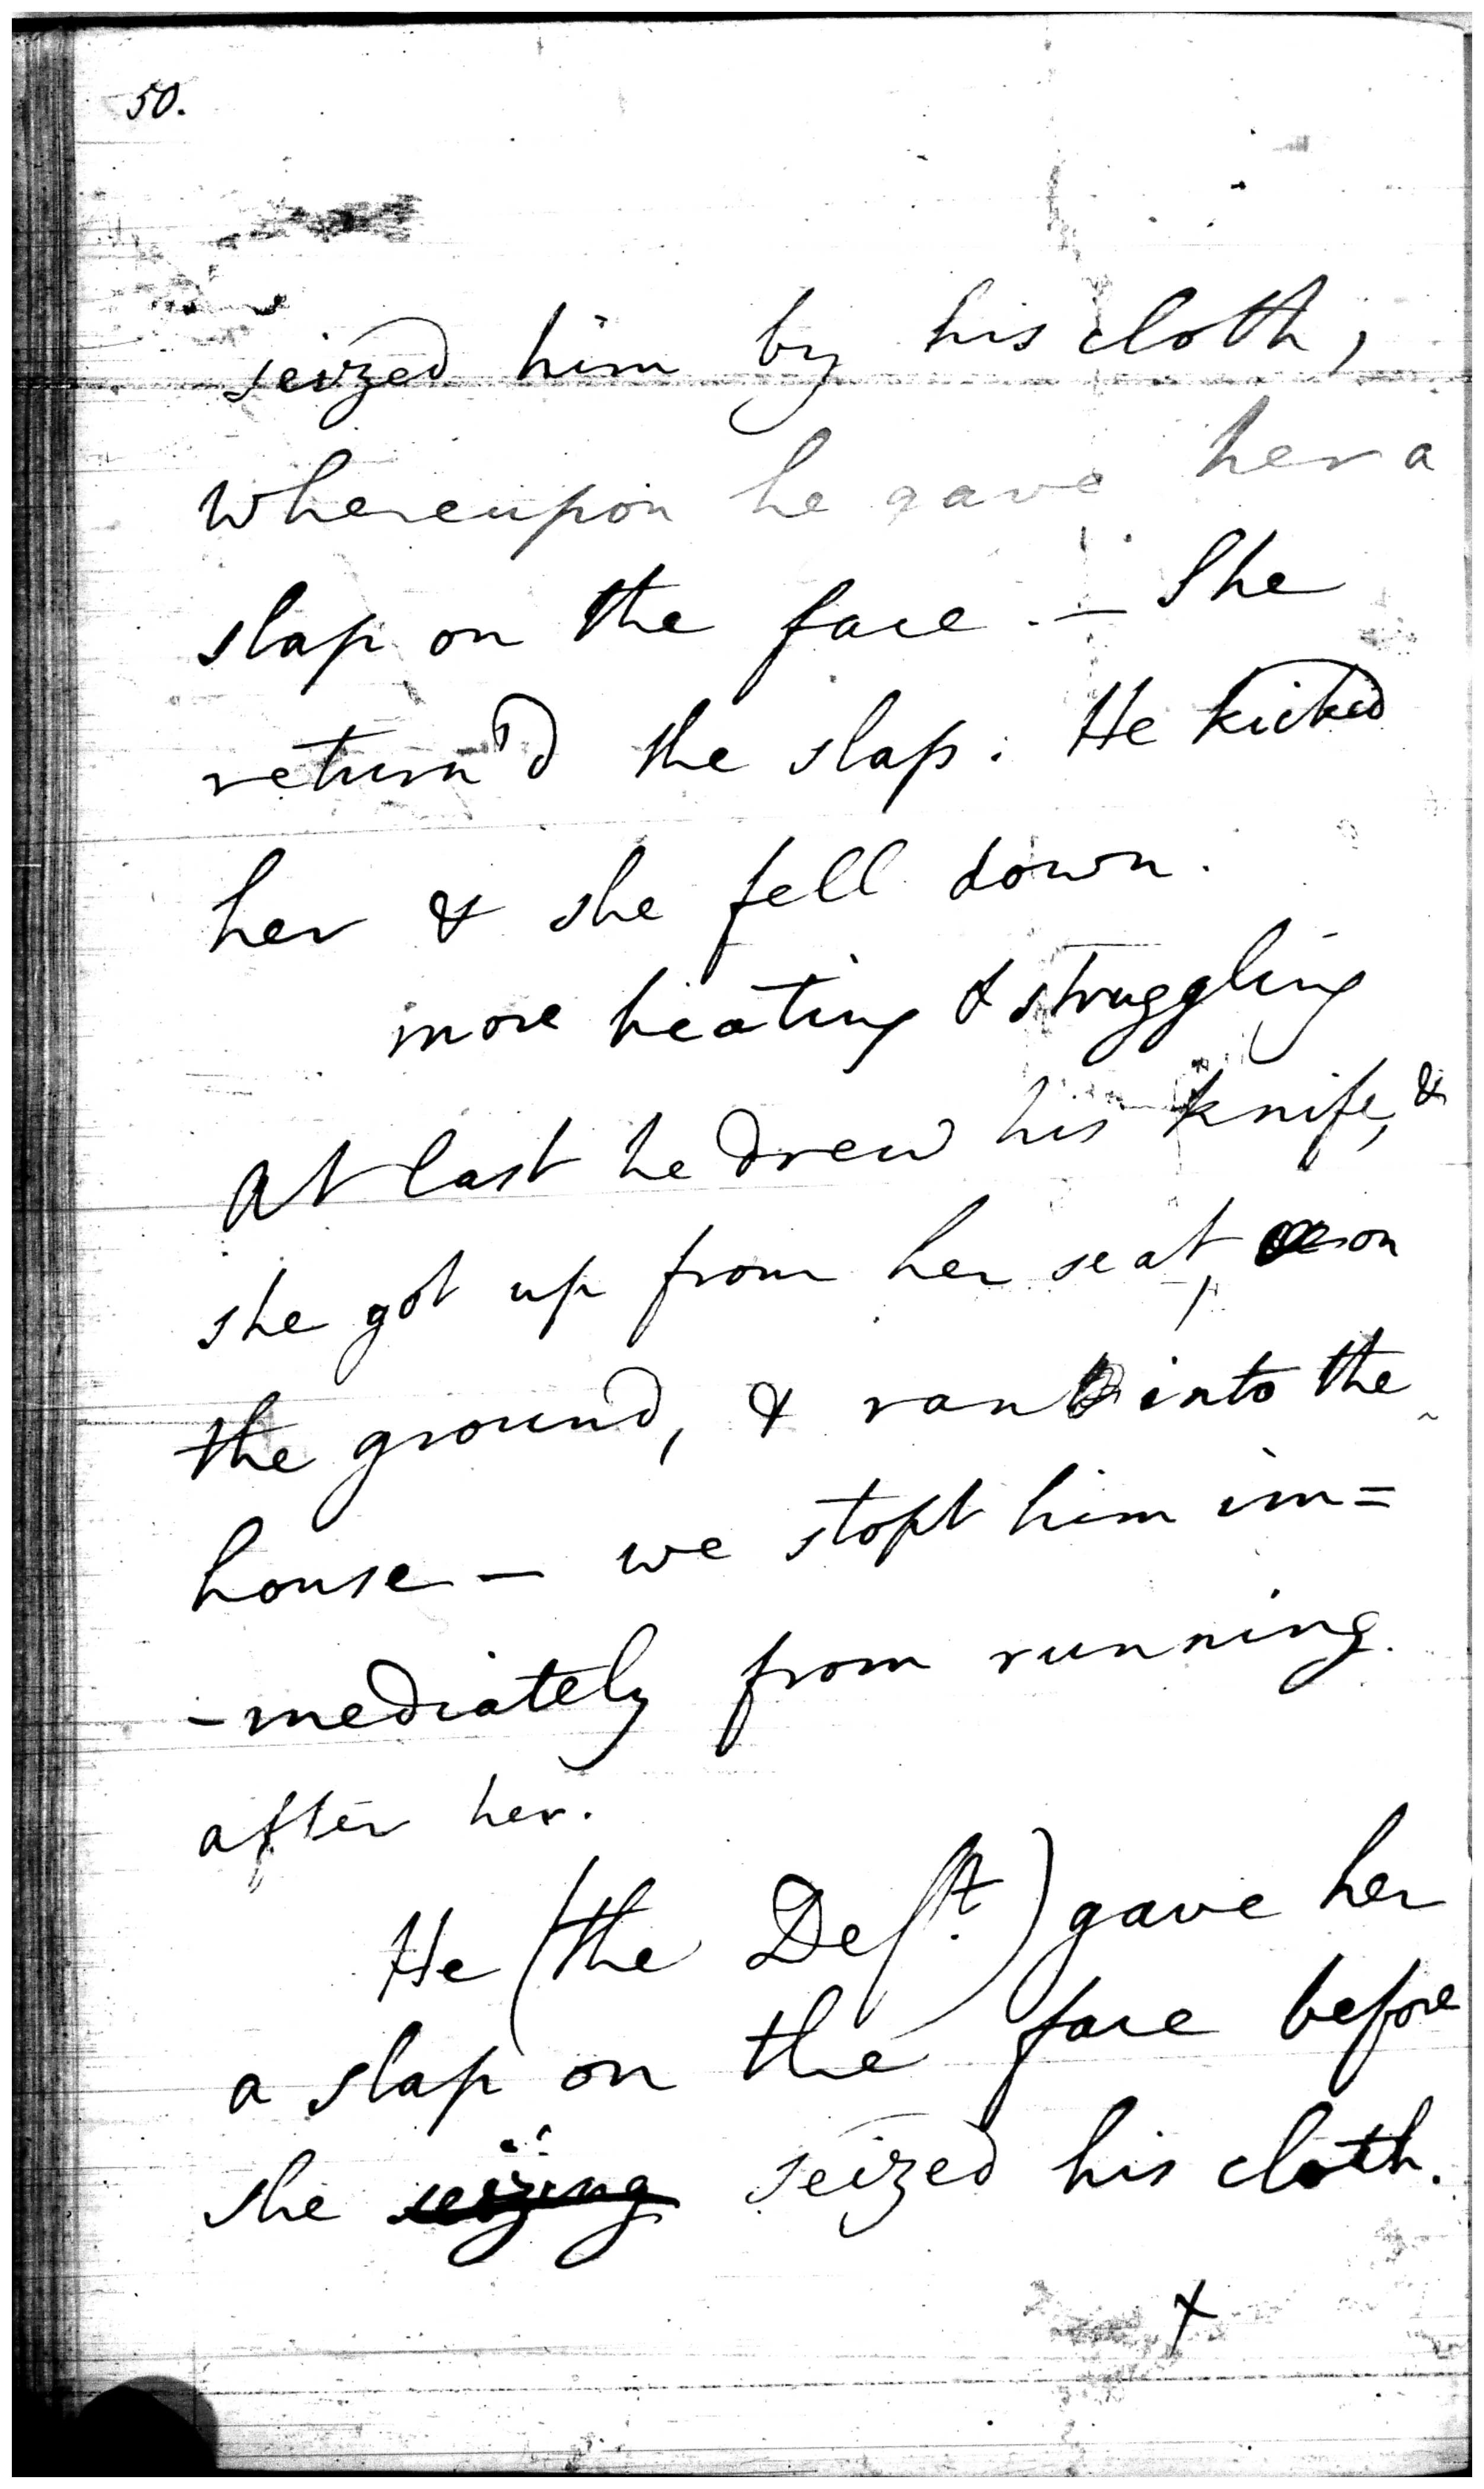 50.
seized him by his cloth,
whereupon he gave her a
slap on the face. — She
return'd the slap: He kicked
her & she fell down.
more beating & struggling
At last he drew his knife, &
she got up from her seat, on
the ground, & ran into the
house — we stopt him im=
-mediately from running
after her.
He (the Deft.) gave her
a slap on the face before
she seizing seized his cloth.
x